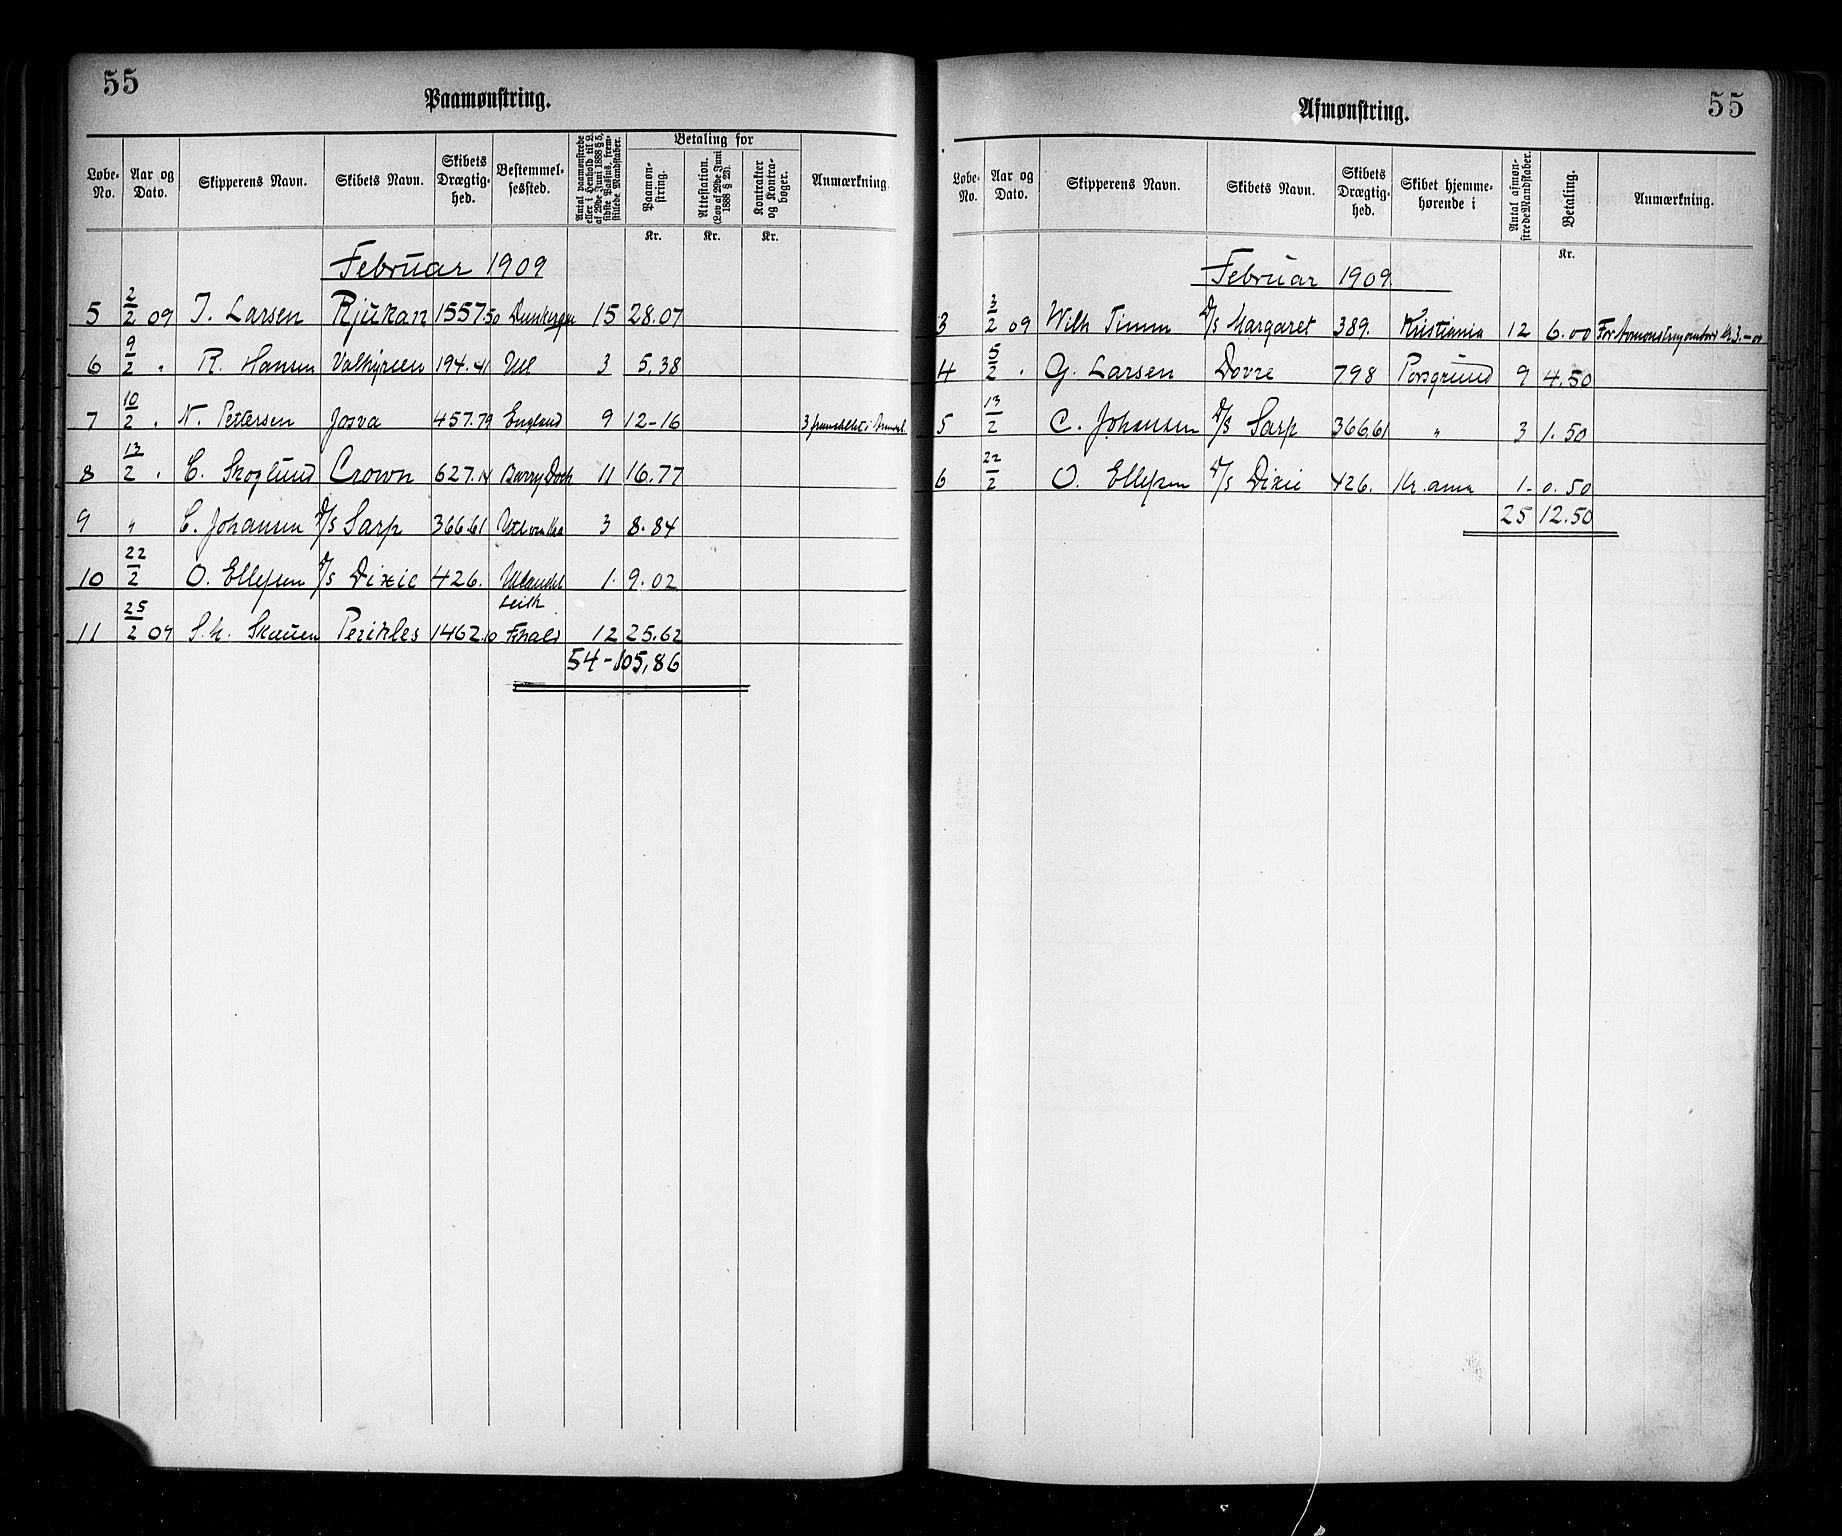 55
Paamønstring.
Løbe-No. Aar og Dato. Skipperens Navn. Skibets Navn. Skibets Drægtig-hed. Bestemmel-sessted. Antal paamønstrede eller i Henhold til L. af 29de Juni 1888 § 5, sidste Passus, frem-stillede Mandskaber. Betaling for Paamøn-string. Attestation. (Lov af 29de Juni 1888 § 23). Kontrakter og Kontra-bøger. Anmærkning
Kr. Kr. Kr.
Februar 1909
5 2/2 09 J. Larsen Rjukan 1557.50 15 28.07
6 9/2 " R. Hansen Valkyrien 194.41 Utl 3 5.38
7 10/2 " N. Pettersen Josva 457.79 England 9 12-16 3
8 13/2 " C. Skoglund Crown 627.14 Barry Dock 11 16.77
9 " C. Johansen D/S Sarp 366.61 3 8.84
10 22/2 O. Ellefsen D/s Dixie 426. Utlandet 1. 9.02
Leith
11 25/2 09 S. M. Skauen Perikles 1462.10 12 25.62
54-105,86
55
Afmønstring.
Løbe-No. Aar og Dato. Skipperens Navn. Skibets Navn. Skibets Drægtig-hed. Skibet hjemme-hørende i Antal afmøn-strede Mandskaber. Betaling. Anmærkning.
Kr.
Februar 1909.
3 3/2 09 Wilh Timm D/s Margaret 389. Kristiania 12 6.00 For Kr 3.-00
4 5/2 " G. Larsen Dovre 798 Porsgrund 9 4.50
5 13/2 C. Johansen D/s Sarp 366,61 " 3 1.50
6 22/2 O. Ellefsen D/s Dixie 426. Kr.ania 1- 0.50
25 12.50